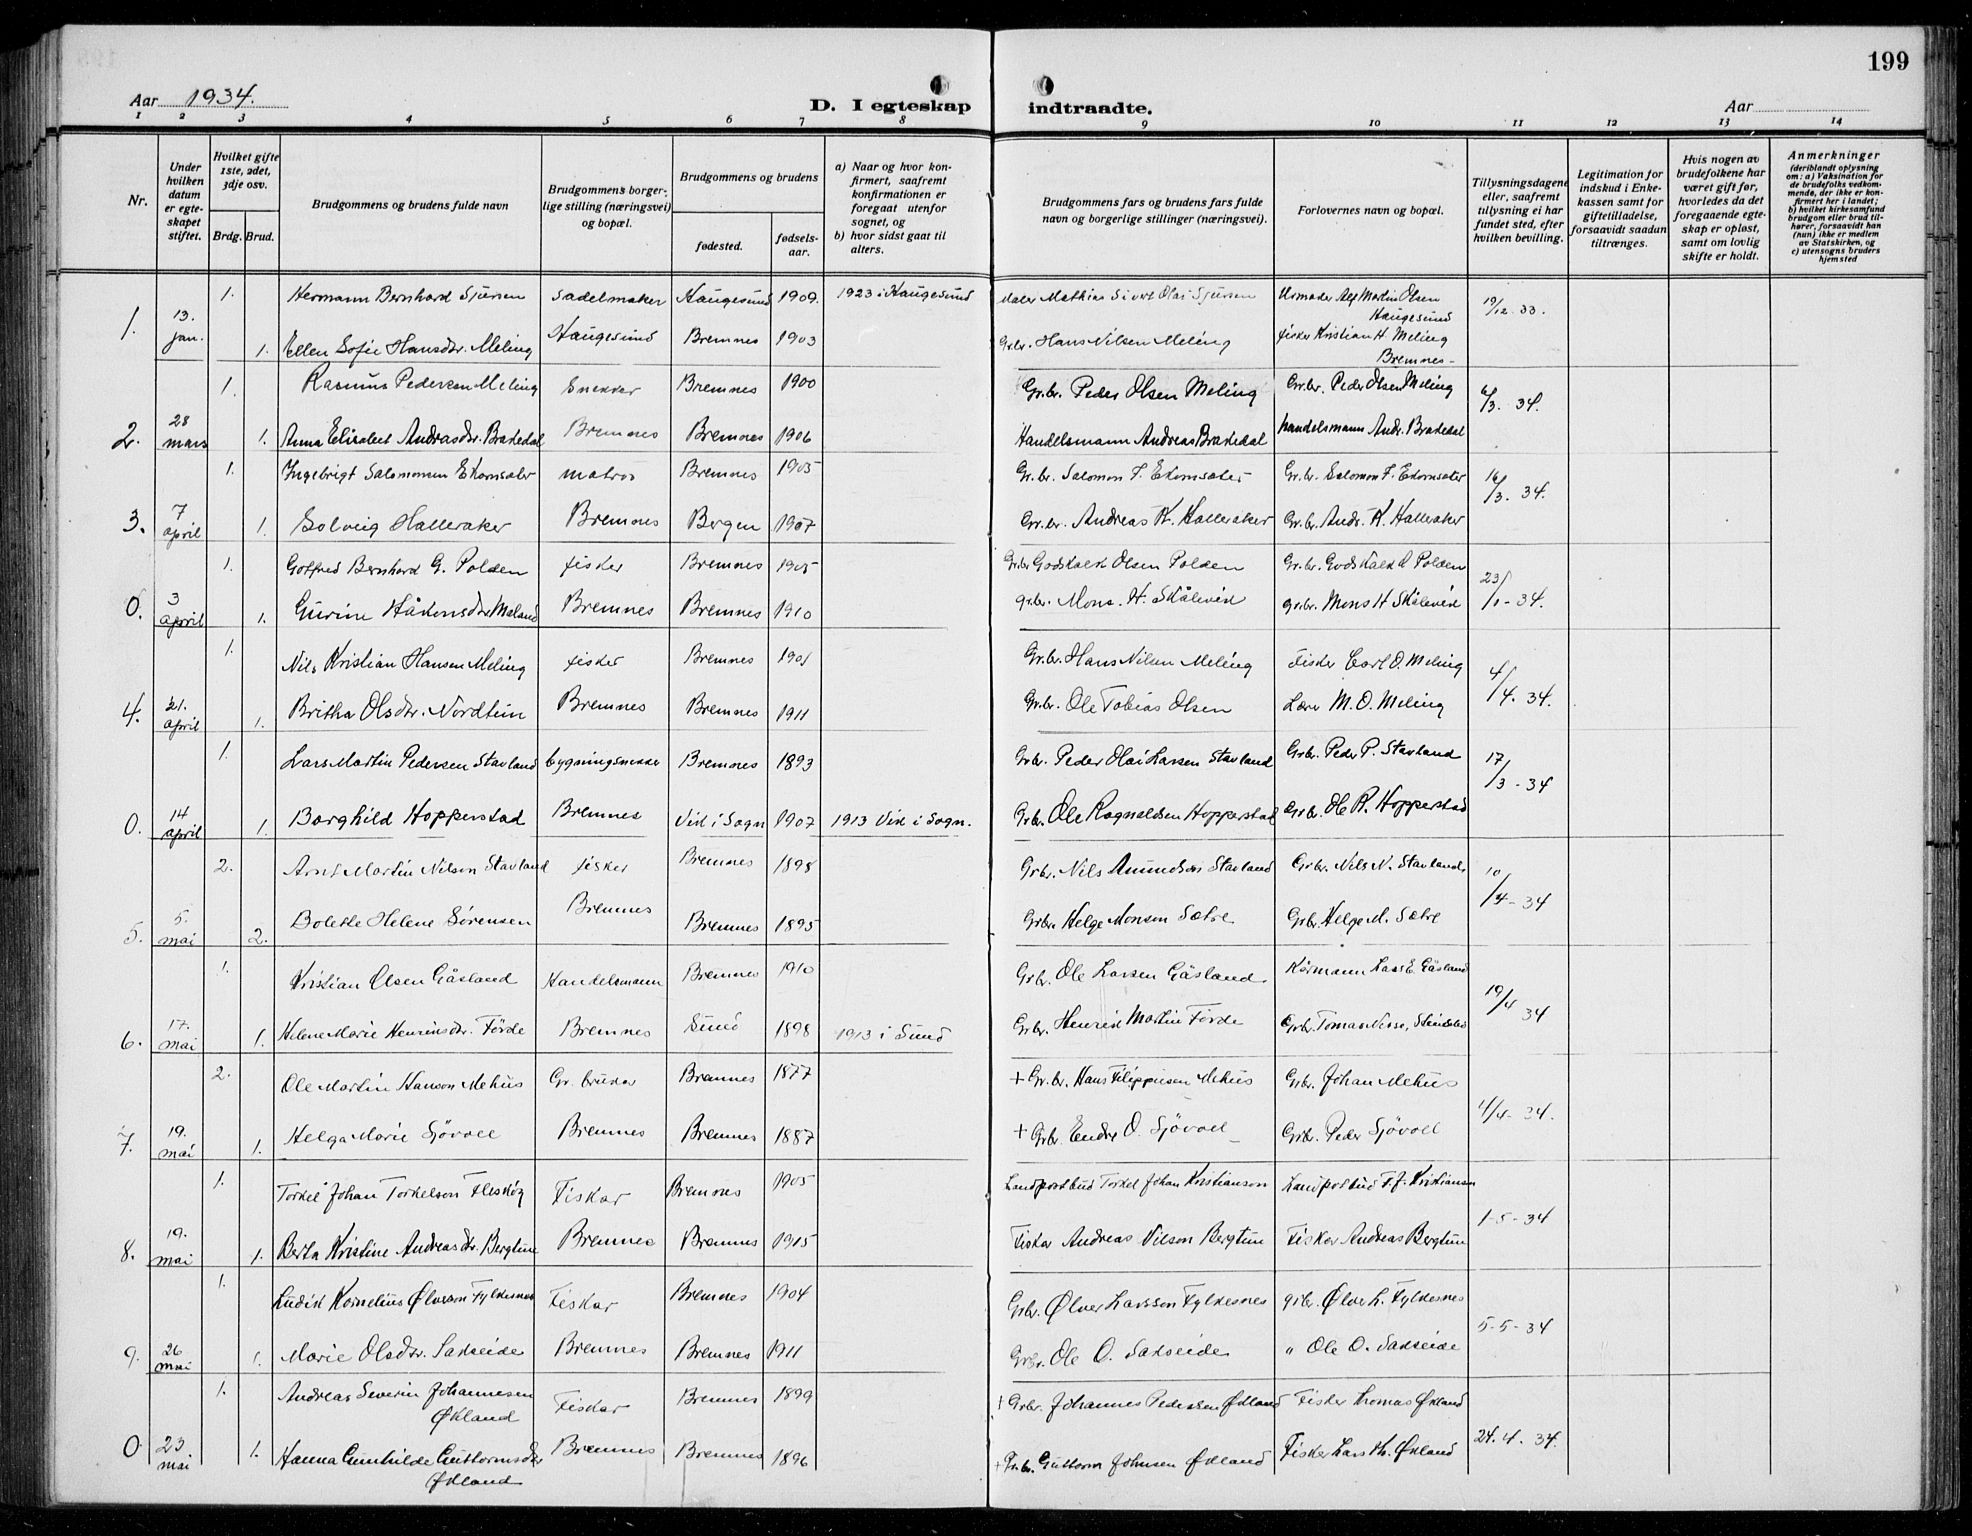 199
Aar 1934.
D. I egteskap
indtraadte.
Aar
1 2 3 4 5 6 7 8 9 10 11 12 13 14
Nr.
Under hvilken datum er egteskapet stiftet.
Hvilket gifte 1ste, 2det, 3dje osv.
Brdg. Brud.
Brudgommens og brudens fulde navn
Brudgommens borgerlige stilling (næringsvei) og bopæl.
Brudgommens og brudens
fødested.
fødselsaar.
a) Naar og hvor konfirmert, saafremt konfirmationen er foregaat utenfor sognet, og
b) hvor sidst gaat til alters.
Brudgommens fars og brudens fars fulde navn og borgerlige stillinger (næringsvei).
Forlovernes navn og bopæl.
Tillysningsdagene eller, saafremt tillysning ei har fundet sted, efter hvilken bevilling.
Legitimation for indskud i Enkekassen samt for giftetilladelse, forsaavidt saadan tiltrænges.
Hvis nogen av brudefolkene har været gift før, hvorledes da det foregaaende egteskap er opløst, samt om lovlig skifte er holdt.
Anmerkninger (deriblandt oplysning om: a) Vaksination for de brudefolks vedkommende, der ikke er konfirmert her i landet; b) hvilket kirkesamfund brudgom eller brud tilhører, forsaavidt han (hun) ikke er medlem av Statskirken, og c) utensogns bruders hjemsted
1. Hermann Bernhard Sjursen Sadelmaker Haugesund 1909. 1923 i Haugesund Maler Mathias Sivert Olai Sjursen Urmaker Alf Martin Olsen Haugesund 19/12-33.
1. 13. jan. 1. Ellen Sofie Hansdtr. Meling Haugesund Bremnes 1903 Gr.br. Hans Nilsen Meling fisker Kristian H Meling Bremnes-
1. Rasmus Pedersen Meling Snekker Bremnes 1900 Gr.br. Peder Olsen Meling Gr.br. Peder Olsen Meling 6/3. 34.
2. 28 mars 1. Anna Elisabet Andrasdtr. Bradedal Bremnes Bremnes 1906 Handelsmann Andreas Bradedal handelsmann Andr. Bradedal
1. Ingebrigt Salomonsen Ekornsæter matros Bremnes 1905 Gr.br. Salomon F. Ekornsæter Gr.br. Salomon F. Ekornsæter 16/3. 34.
3. 7 april 1. Solveig Halleraker Bremnes Bergen 1907 Gr.br. Andreas K. Halleraker Gr.br. Andr. K. Halleraker
1. Gotfred Bernhard G. Polden fisker Bremnes 1905 Gr.br Godskalk Olsen Polden Gr.br. Godskalk O Polden 23/1-34.
0. 3 april 1. Gurine Håkonsdtr Maland Bremnes Bremnes 1910 gr.br. Mons. H. Skålevik gr.br. Mons H Skålevik
1. Nils Kristian Hansen Meling fisker Bremnes 1901 Gr.br. Hans Nilsen Meling Fisker Carl O. Meling 4/4. 34.
4. 21. april 1. Britha Olsdtr. Nordtun Bremnes Bremnes 1911 Gr.br. Ole Tobias Olsen Lærer M. O. Meling
1. Lars Martin Pedersen Stavland bygningsnekker Bremnes 1893 Grbr. Peder Olai Larsen Stavland Grbr. Peder P. Stavland 17/3-34
0. 14 april 1. Borghild Hopperstad Bremnes Vik i Sogn 1907 1913 Vik i Sogn. Grbr. Ole Ragnaldsen Hopperstad Grbr. Ole R. Hopperstad
2. Arnt Martin Nilsen Stavland fisker Bremnes 1898 Grbr. Nils Amundsen Stavland Grbr. Nils N. Stavland 10/4-34
5. 5. mai 2. Bolette Helene Sørensen Bremnes Bremnes 1895 Grbr. Helge Monsen Sætre Grbr. Helge M. Sætre
1. Kristian Olsen Gåsland Handelsmann Bremnes 1910 Grbr. Ole Larsen Gåsland Kårmann Lars E. Gåsland 19/4 34
6. 17. mai 1. Helene Marie Henriksdtr. Förde Bremnes Sund 1898 1913 i Sund Grbr. Henrik Martin Förde Grbr. Tomas Nesse,
2. Ole Martin Hanson Mehus Gr. brukar Bremnes 1877 + Gr.br. Hans Filippusen Mehus Grbr. Johan Mehus 4/4-34.
7. 19. mai 1. Helga Marie Sjövoll Bremnes Bremnes 1887 + Grbr. Endre O. Sjövoll Grbr. Peder Sjövoll
1. Torkel Johan Torkelson Fleskøy Fiskar Bremnes 1905 Landpostbud Torkel Johan Kristianson Landpostbud T. J. Kristianson 1-5-34
8. 19. mai 1. Berta Kristine Andreasdtr. Bergtun Bremnes Bremnes 1915 Fiskar Andreas Nilson Bergtun Fiskar Andreas Bergtun
1. Ludik Kornelius Ølverson Fylkesnes Fiskar Bremnes 1904 Grbr. Ølver Larsson Fylkesnes grbr. Ølver L. Fylkesnes 5-5-34
9. 26 mai 1. Marie Olsdtr. Sakseide Bremnes Bremnes 1911 Grbr. Ole O. Sakseide " Ole O. Sakseide
1. Andreas Severin Johannesen Økland Fiskar Bremnes 1899 + Grbr. Johannes Pedersen Økland Fisker Thomas Økland 24.4.34.
0 23 mai 1. Hanna Gunhilde Guttormsdtr Økland Bremnes Bremnes 1896 + Grbr. Guttorm Johnsen Økland Fisker Lars Th. Økland